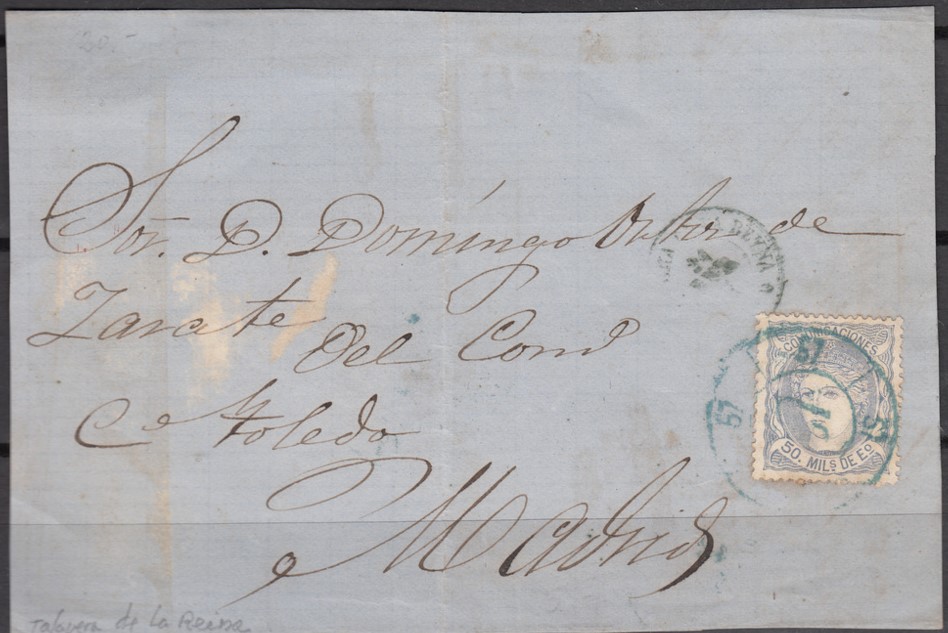 Sor. D. Domingo de
Zarate del Cond
Ce Toledo
Madrid
REYNA
COMUNICACIONES
57
57
57
50. MILS DE Eo.
Talavera de la Reina